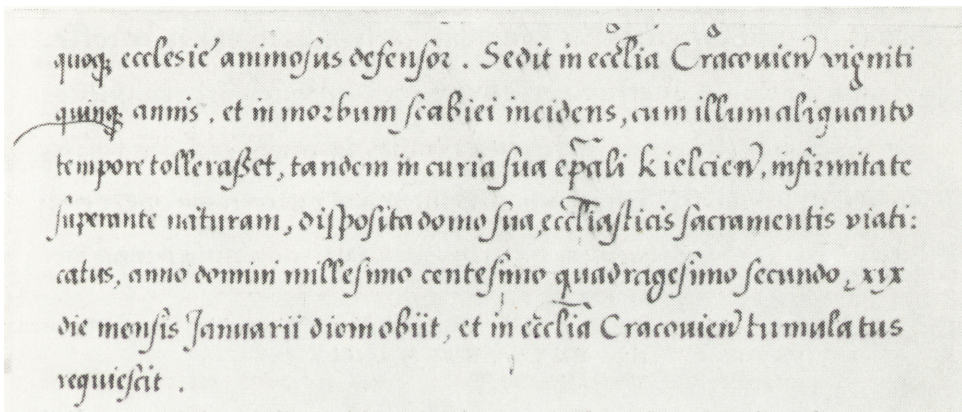 quoqꝫ ecclesie animosus defensor . Sedit in ecc̄lia Cracovien̄ vigniti
quinqꝫ annis , et in morbum scabiei incidens, cum illum aliquanto
tempore tollerasset, tandem in curia sua ep̄ali kielcien̄, infirmitate
superante naturam, disposita domo sua, ecc̄liasticis sacramentis viati:
catus, anno domini millesimo centesimo quadragesimo secundo, xix
die mensis Januarii diem obiit, et in ecc̄lia Cracovien̄ tumulatus
requiescit .